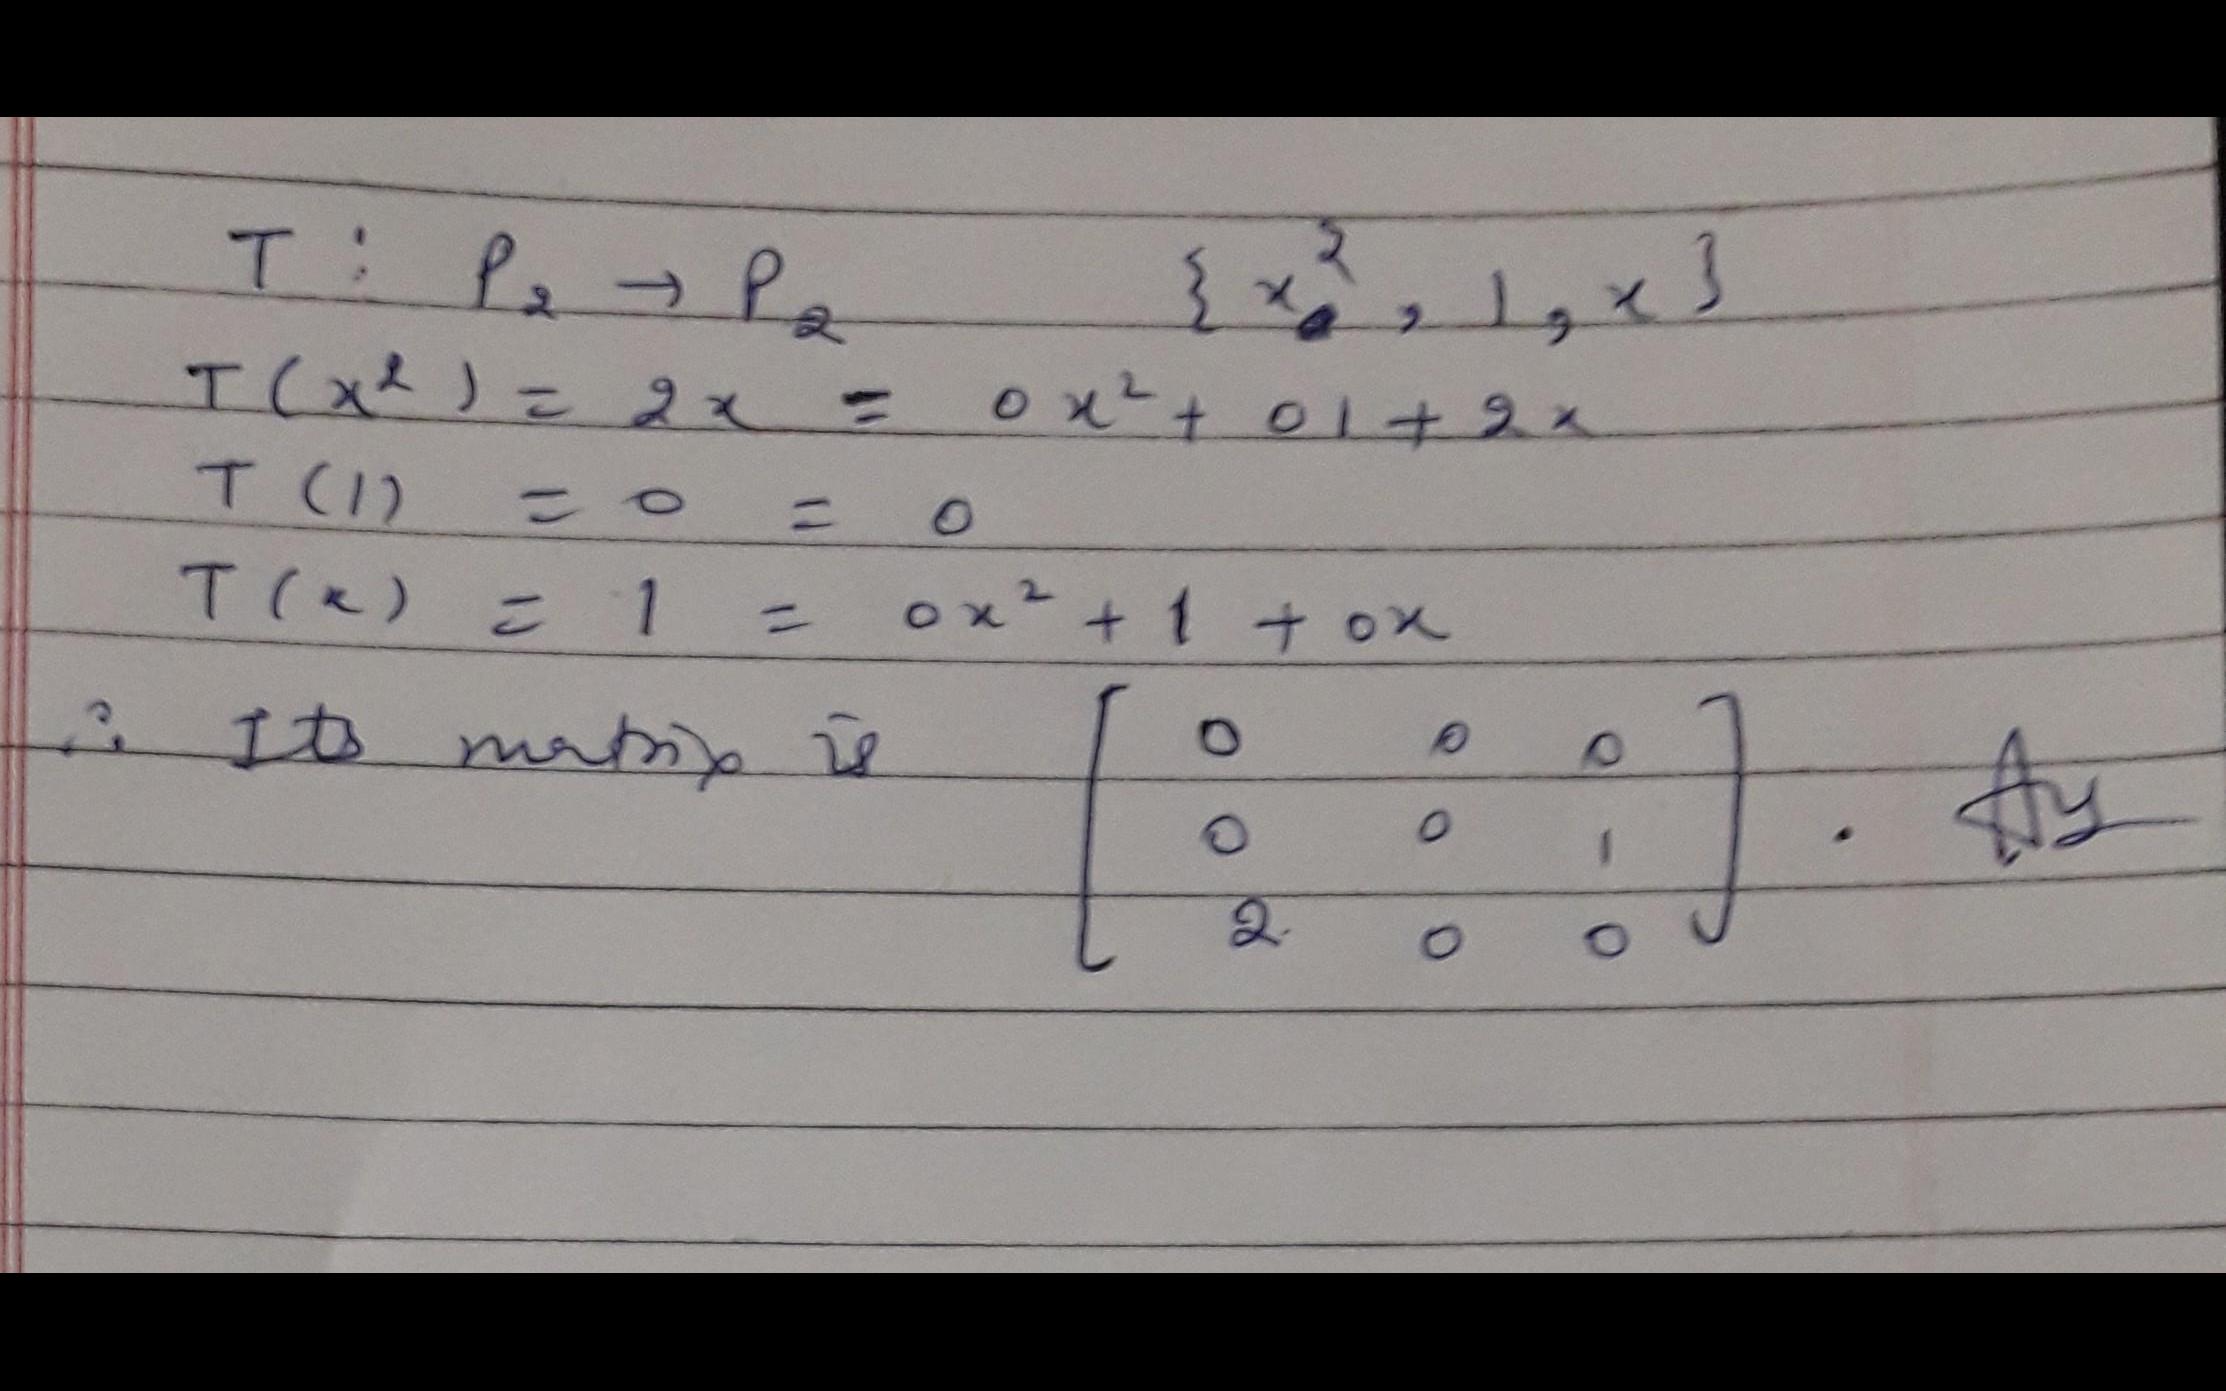 T : P₂ → P₂ {x², 1, x}
T(x²) = 2x = 0x² + 01 + 2x
T(1) = 0 = 0
T(x) = 1 = 0x² + 1 + 0x
∴ Its matrix is [ 0 0 0
0 0 1
2 0 0 ] .